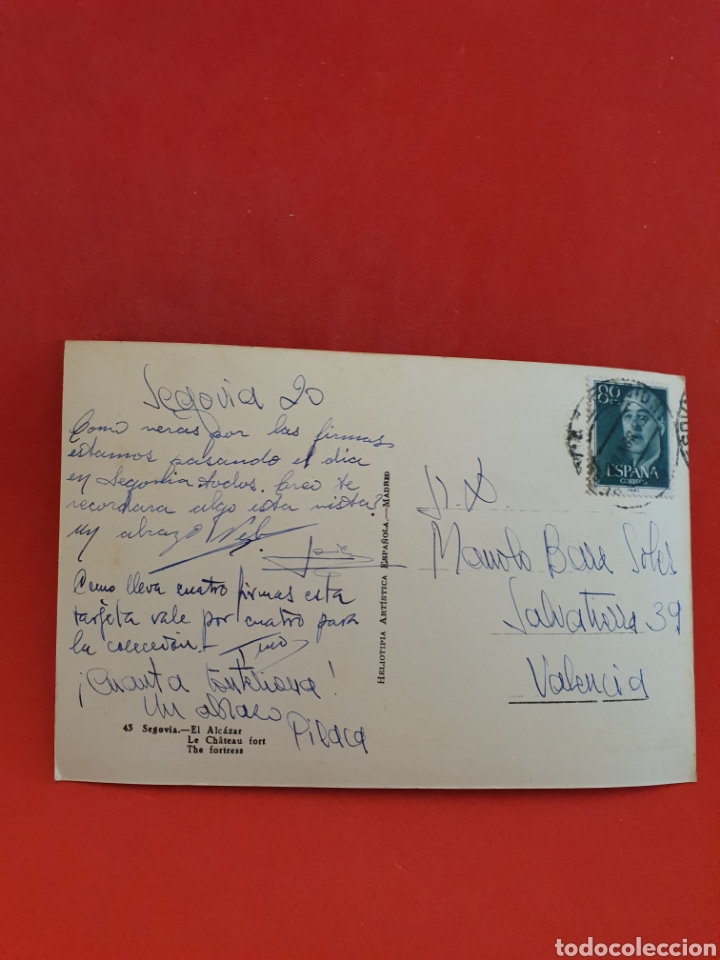 Segovia 20
Como veras por las firmas
estamos pasando el dia
en Segovia todos. Creo te
recordara algo esta vista?
un abrazo
Como lleva cuatro firmas esta
tarjeta vale por cuatro para
la colección.- Tino
¡Cuanta tonteriaaa!
Un abrazo
Pilaca
43 Segovia.—El Alcázar
Le Château fort
The fortress
HELIOTIPIA ARTÍSTICA ESPAÑOLA.—MADRID
80 C
ESPAÑA
CORREOS
Sr. D.
Manolo Soles
Salvatierra 39
Valencia
todocoleccion